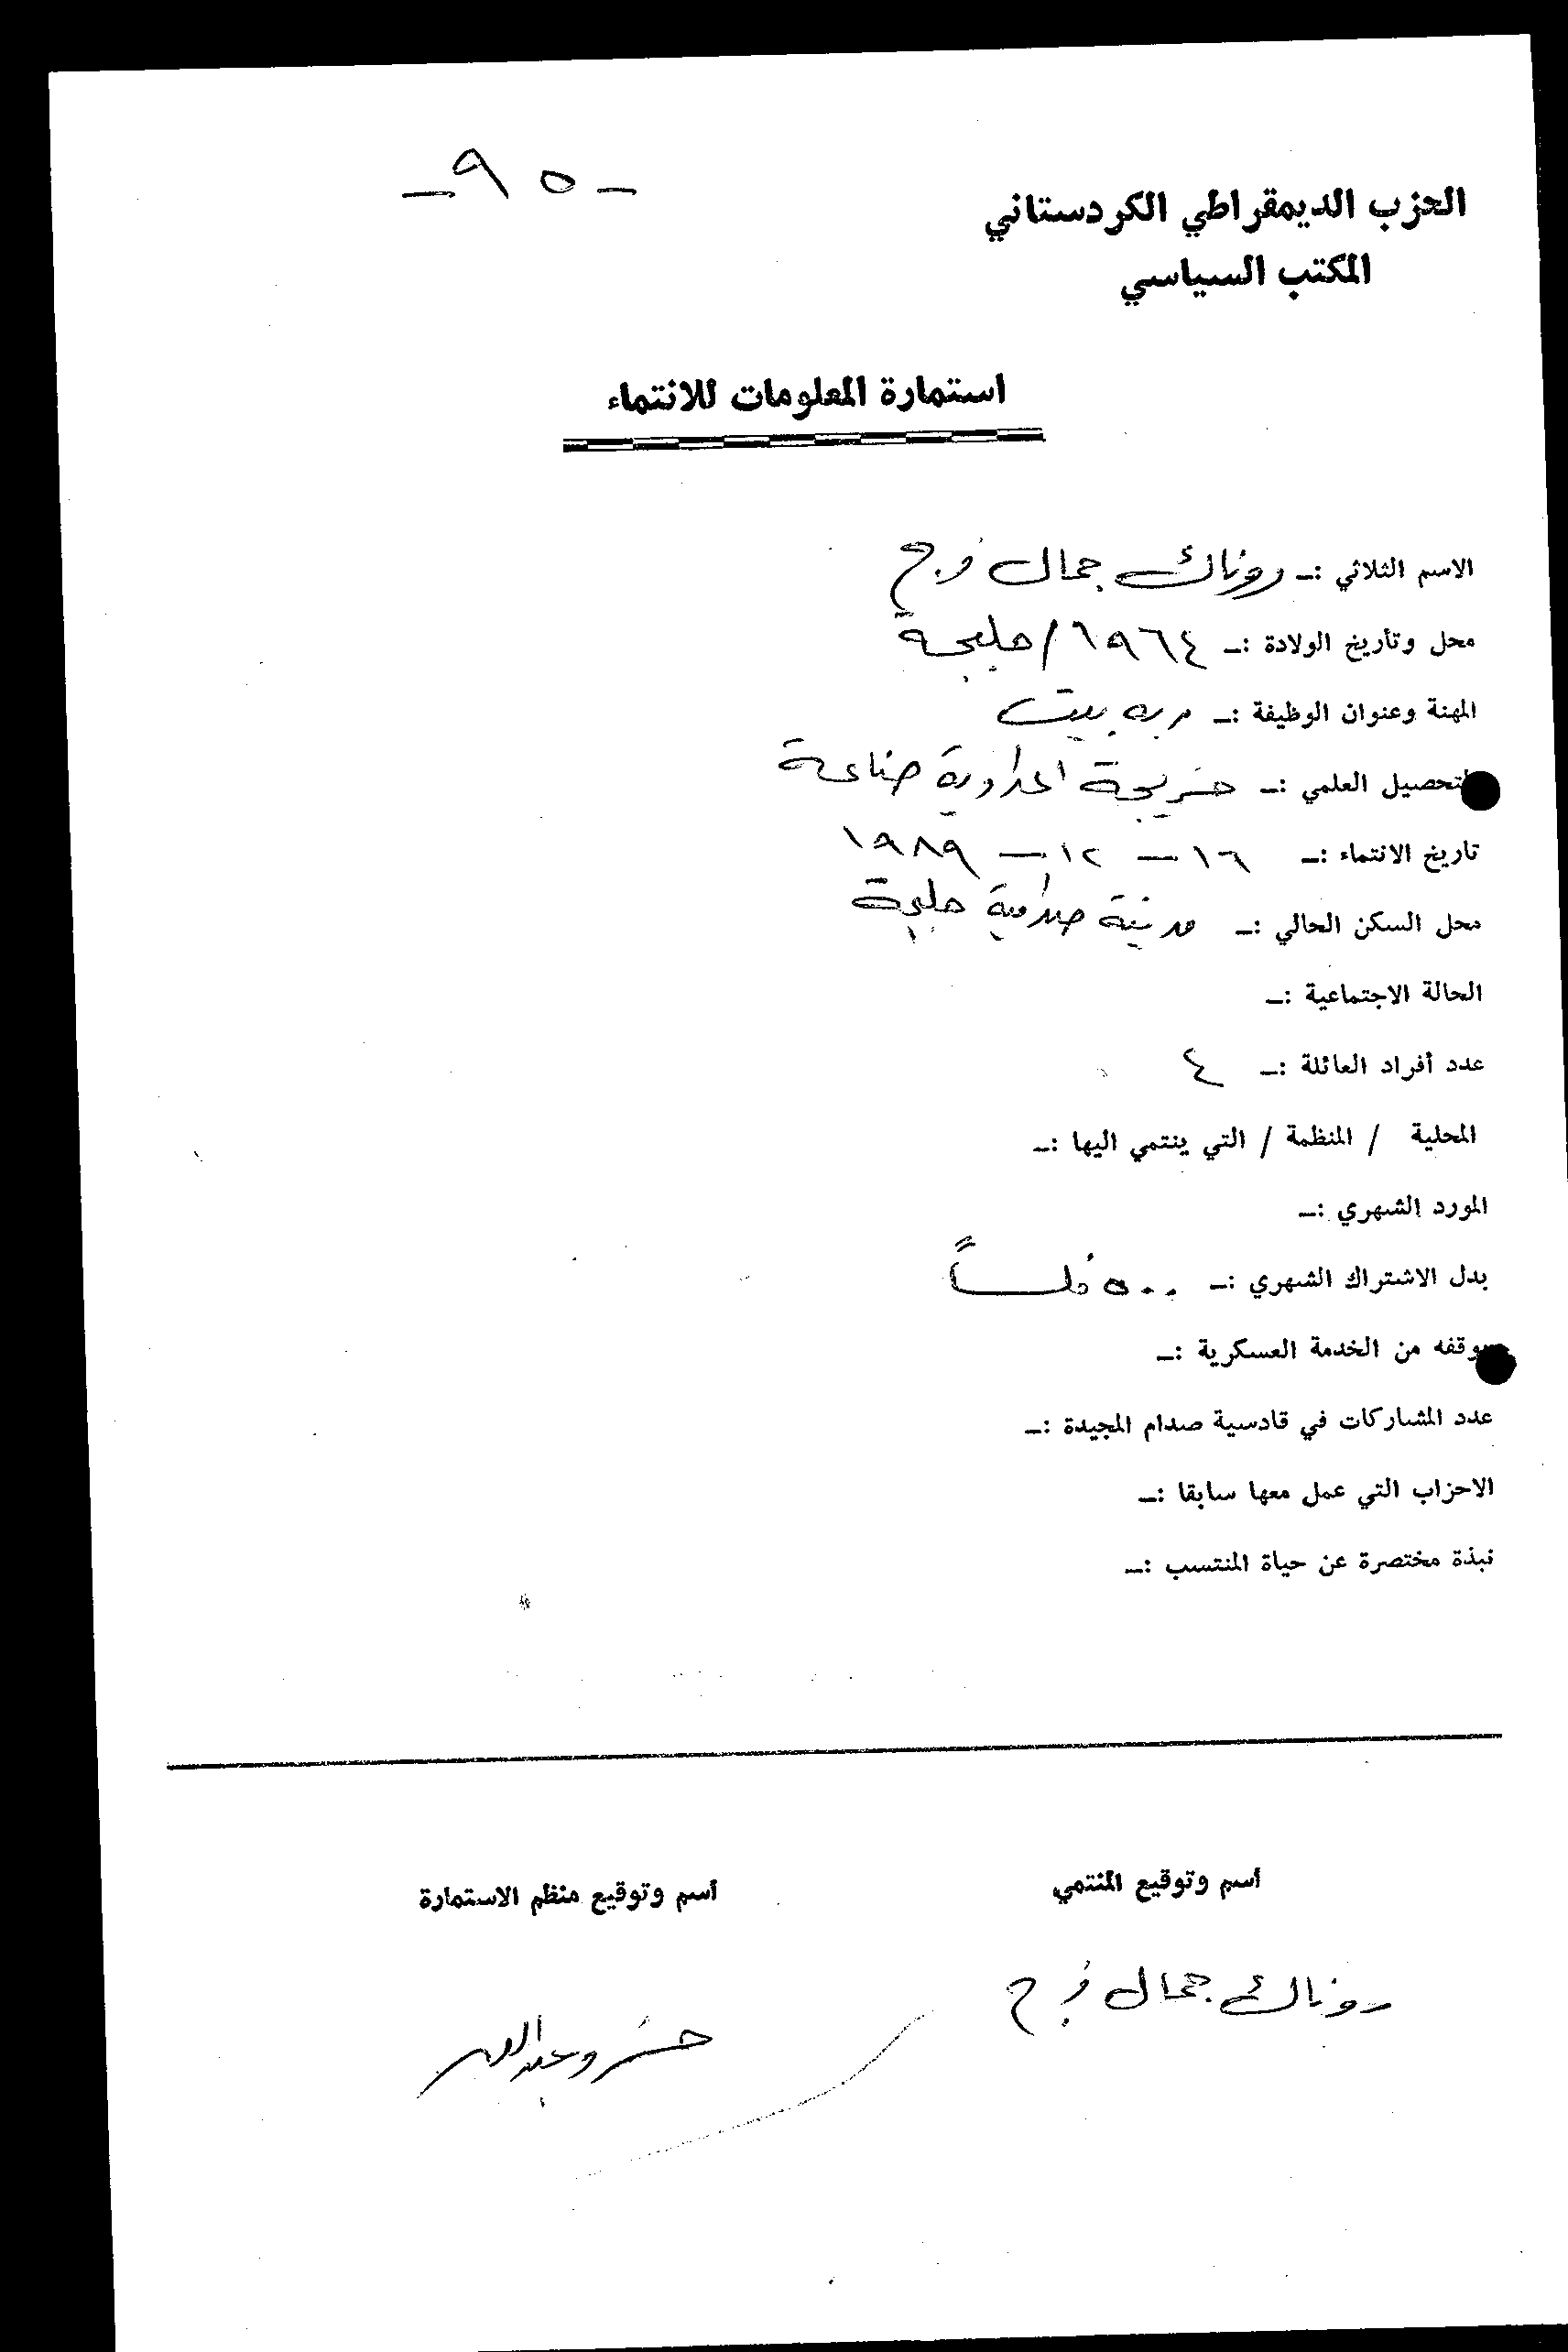 -٩٥-
الحزب الديمقراطي الكردستاني
المكتب السياسي
استمارة المعلومات للانتماء
الاسم الثلاثي :ـ روناك جمال فرج
محل وتأريخ الولادة :ـ ١٩٦٤ / حلبجة
المهنة وعنوان الوظيفة :ـ ربه بيت
التحصيل العلمي :ـ خريجة اعدادية صناعة
تاريخ الانتماء :ـ ١٦ - ١٢ - ١٩٨٩
محل السكن الحالي :ـ مدينة صدامية حلبجة
الحالة الاجتماعية :ـ
عدد أفراد العائلة :ـ ٤
المحلية / المنظمة / التي ينتمي اليها :ـ
المورد الشهري :ـ
بدل الاشتراك الشهري :ـ ٥٠٠ فلساً
موقفه من الخدمة العسكرية :ـ
عدد المشاركات في قادسية صدام المجيدة :ـ
الاحزاب التي عمل معها سابقا :ـ
نبذة مختصرة عن حياة المنتسب :ـ
أسم وتوقيع المنتمي
أسم وتوقيع منظم الاستمارة
روناك جمال فرج
خسرو عبدالله